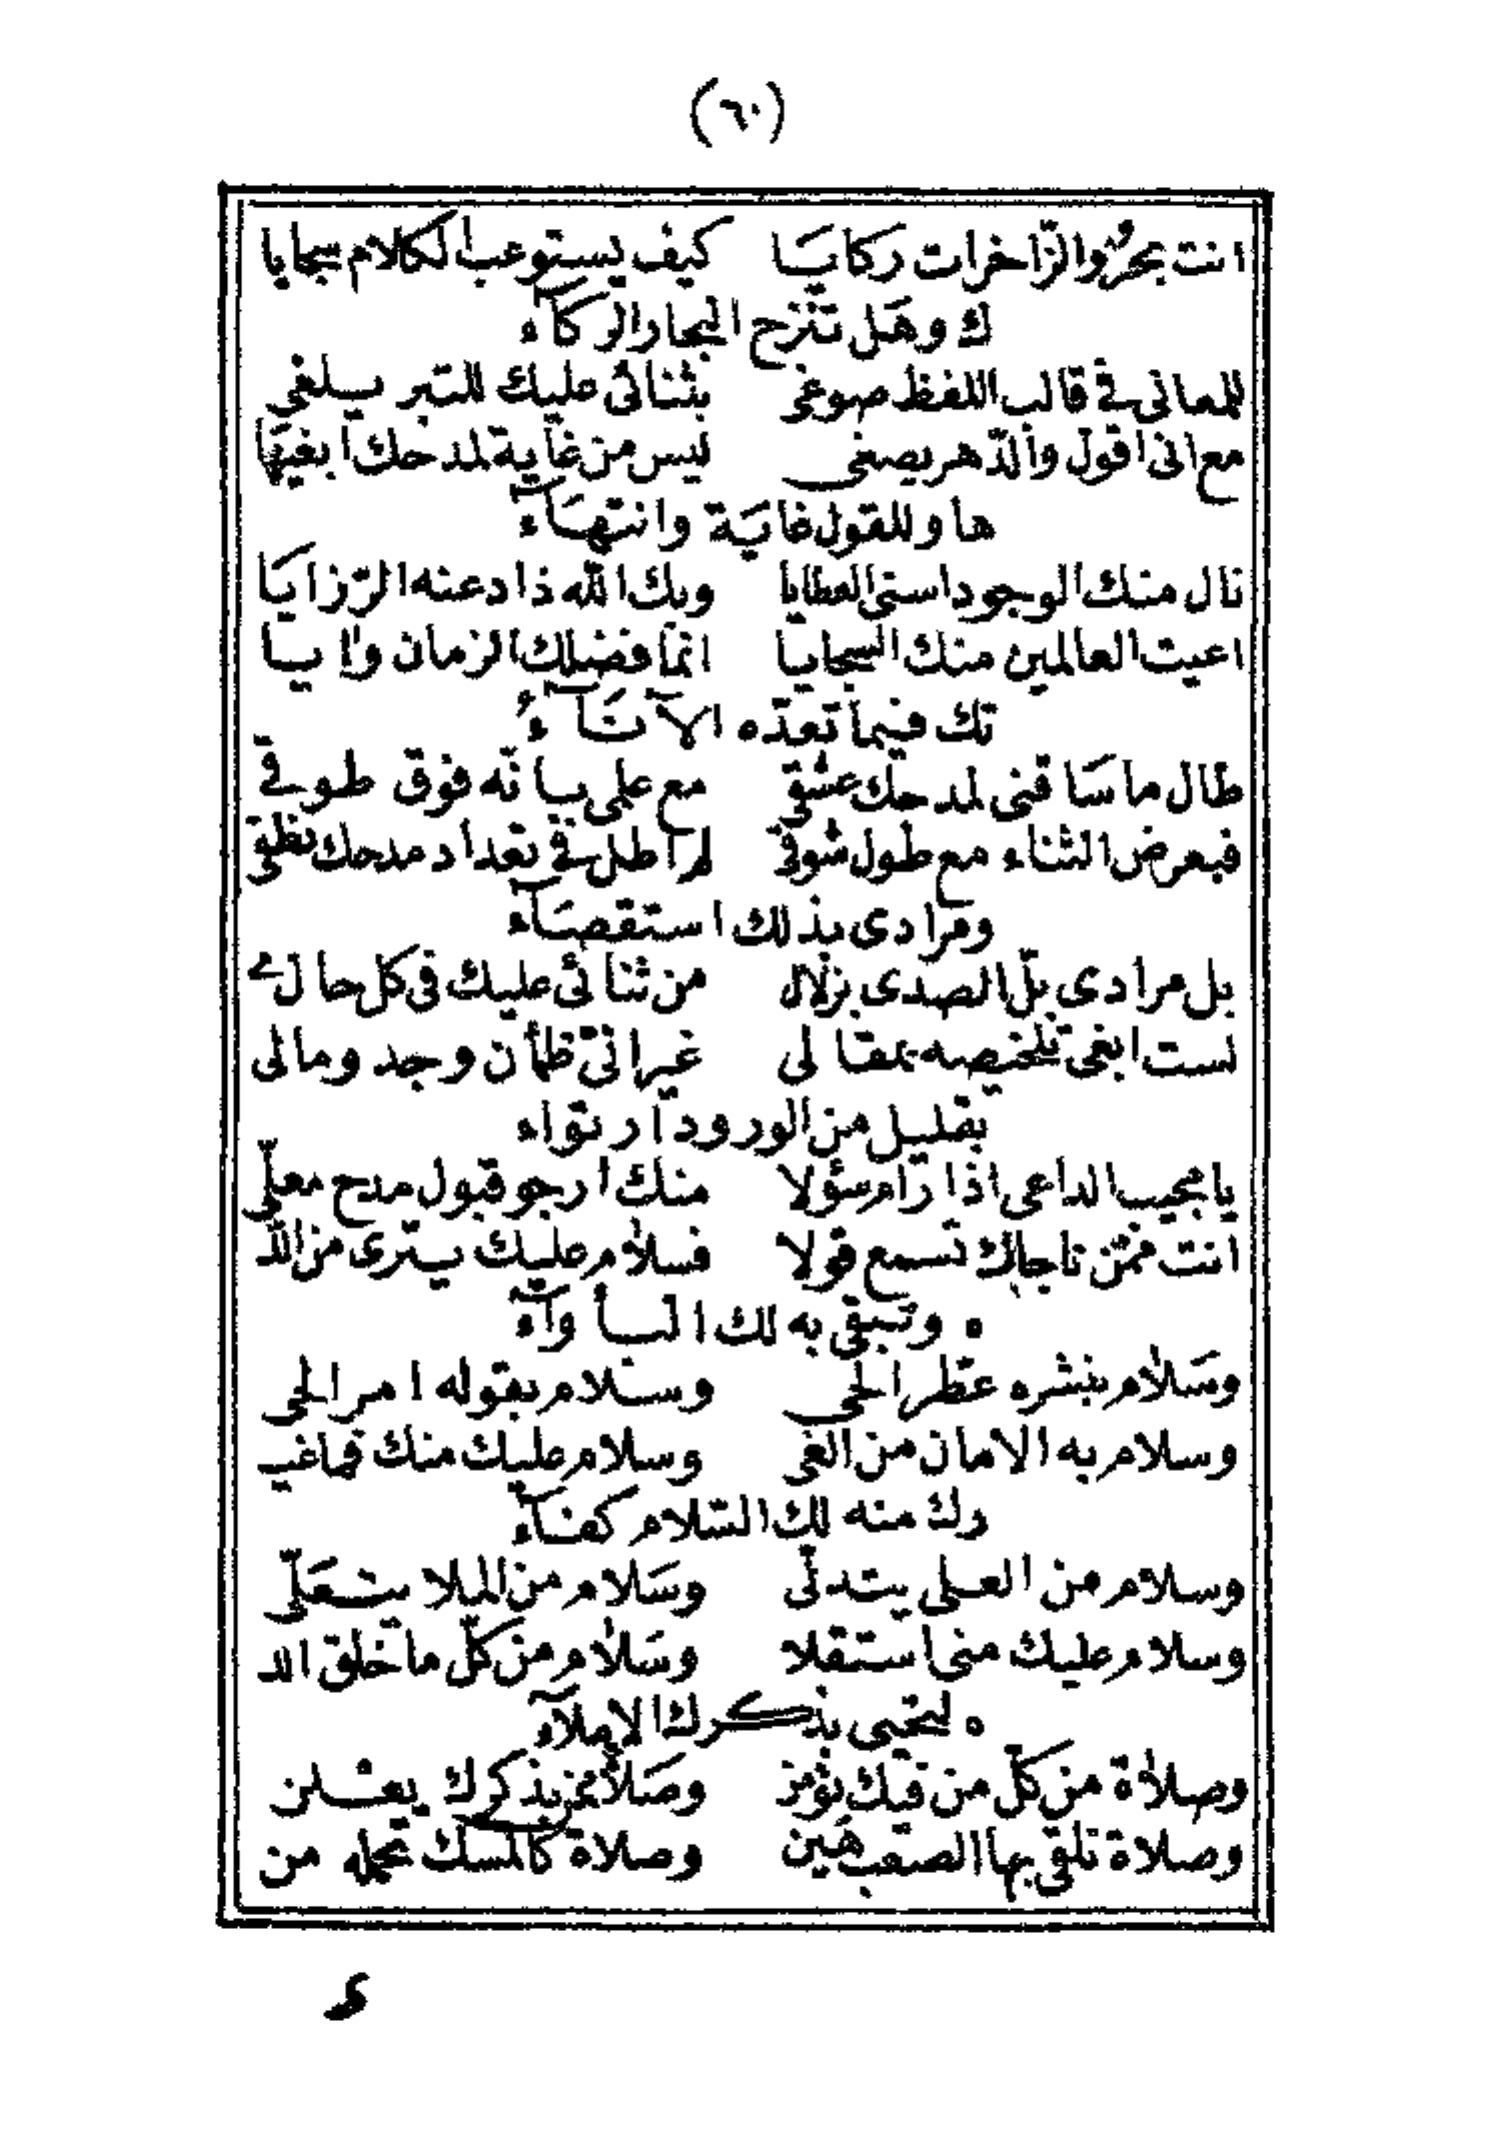 (٦٠)
انت بحرٌ والزّاخرات ركايَا كيف يستوعب الكلام سجايا
ك وهَل تَنْزح البحار الركآء
للمعانى فى قالب اللفظ صوغى بثنائى عليك للتبر يلغى
مع انى اقول والدّهر يصغى ليس من غاية لمدحك ابغيها
ها وللقول غايَة وانتهَآء
نال منك الوجود اسنى العطايا وبك الله ذاد عنه الرّزايَا
اعيت العالمين منك السجايا انمّا فضلك الزمان وايا
تك فيما تعدّه الآنَآءُ
طال ما سَاقنى لمدحك عشقى مع علمى بانّه فوق طوقى
فبعرض الثناء مع طول شوقى لم اطل فى تعداد مدحك نطقى
ومرادى بذلك استقصَآء
بل مرادى بلّ الصدى بزلال من ثنائى عليك فى كل حال
لست ابغى تلخيصه بمقالى غير انّى ظمأن وجد ومالى
بقليل من الورود ارتواء
يا مجيب الداعى اذا رام سؤلا منك ارجو قبول مدح معلّى
انت ممّن ناجاك تسمع قولا فسلام عليك يترى من اللّه
ه وتبقى به لك البأوآء
وسَلام بنشره عطر الحى وسلام بقوله امر الحى
وسلام به الامان من الغى وسلام عليك منك فما غيـ
رك منه لك السّلام كفآء
وسلام من العلى يتدلّى وسَلام من الملا يتعَلّى
وسلام عليك منى استقلا وسَلام من كلّ ما خلق اللـ
ه لتحيى بذكرك الاملآء
وصلاة من كلّ من فيك يؤمن وصَلاة ممن بذكرك يعلن
وصلاة تلقى بها الصّعب هَين وصلاة كالمسك تحمله من